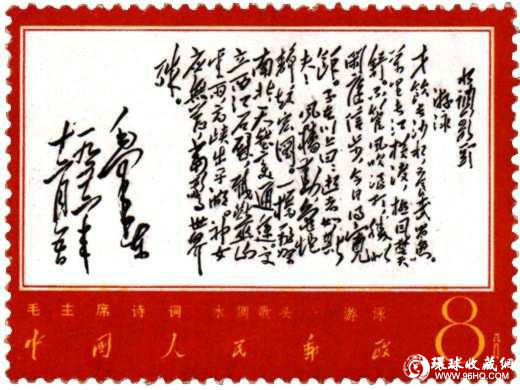 水调歌头
游泳
才饮长沙水，又食武昌鱼。
万里长江横渡，极目楚天
舒。不管风吹浪打，胜似
闲庭信步，今日得宽
馀。子在川上曰：逝者如斯
夫！风樯动，龟蛇
静，起宏图。一桥飞架
南北，天堑变通途。更
立西江石壁，截断巫山
云雨，高峡出平湖。神女
应无恙，当惊世界
殊。
毛泽东
一九五六年
十二月五日
毛主席诗词 水调歌头·游泳
中国人民邮政
8
环球收藏网
www.96HQ.com